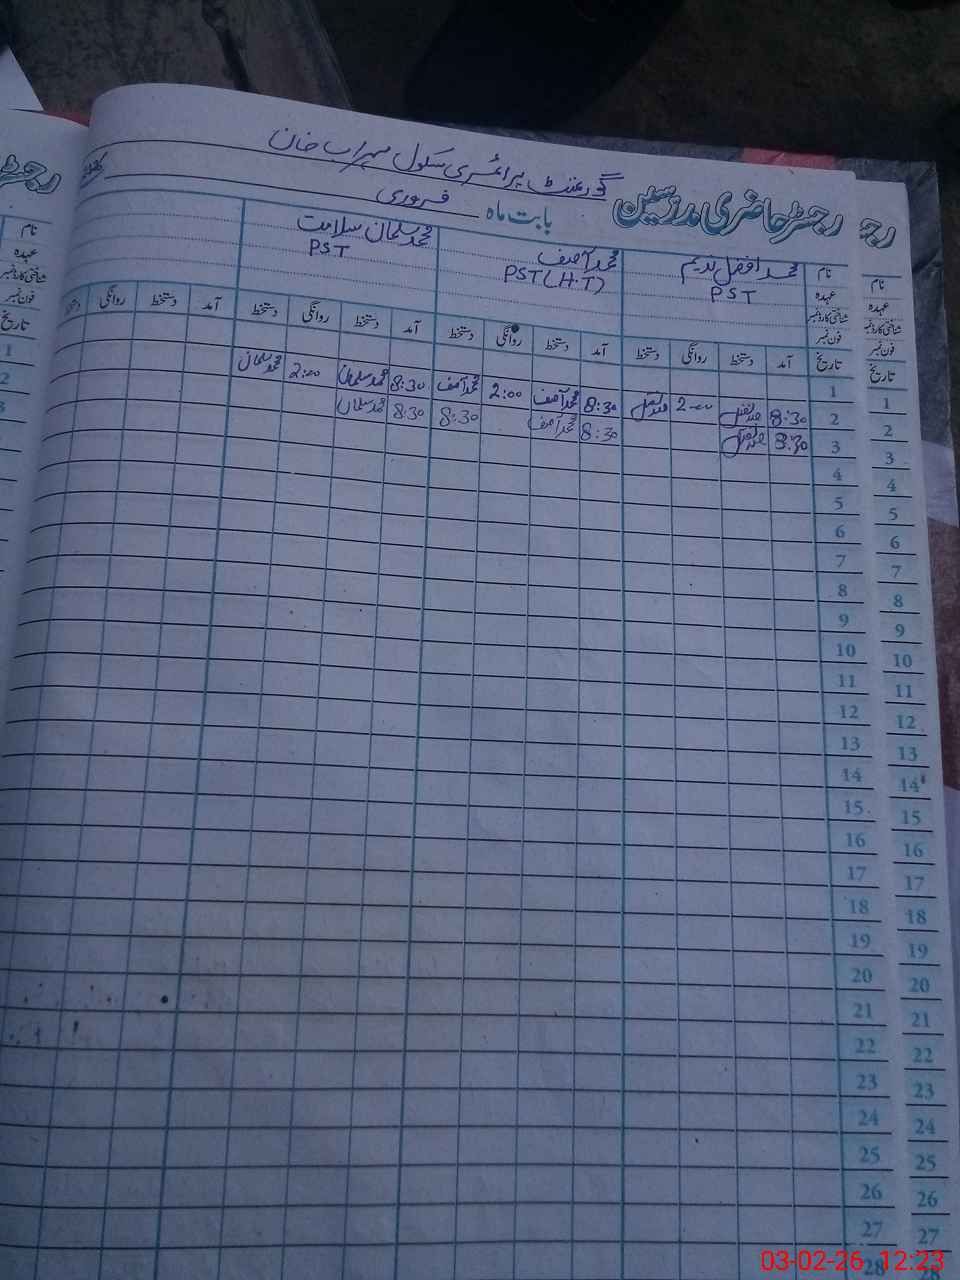 گورنمنٹ پرائمری سکول سہراب خان
رجسٹر حاضری مدرسین
بابت ماہ فروری
نام محمد افضل ندیم محمد آصف محمد سلمان سلامت
عہدہ PST PST (H.T) PST
شناختی کارڈ نمبر
فون نمبر
تاریخ آمد دستخط روانگی دستخط آمد دستخط روانگی دستخط آمد دستخط روانگی دستخط آمد دستخط روانگی دستخط
1
2 8:30 2:00 8:30 محمد آصف 2:00 محمد آصف 8:30 محمد سلمان 2:00 محمد سلمان
3 8:30 8:30 محمد آصف 8:30 8:30 محمد سلمان
4
5
6
7
8
9
10
11
12
13
14
15
16
17
18
19
20
21
22
23
24
25
26
27
28
رجـ
نام
عہدہ
شناختی کارڈ نمبر
فون نمبر
تاریخ
1
2
3
4
5
6
7
8
9
10
11
12
13
14
15
16
17
18
19
20
21
22
23
24
25
26
27
رجسٹر
نام
عہدہ
شناختی کارڈ نمبر
فون نمبر
تاریخ
1
2
3
03-02-26 12:23